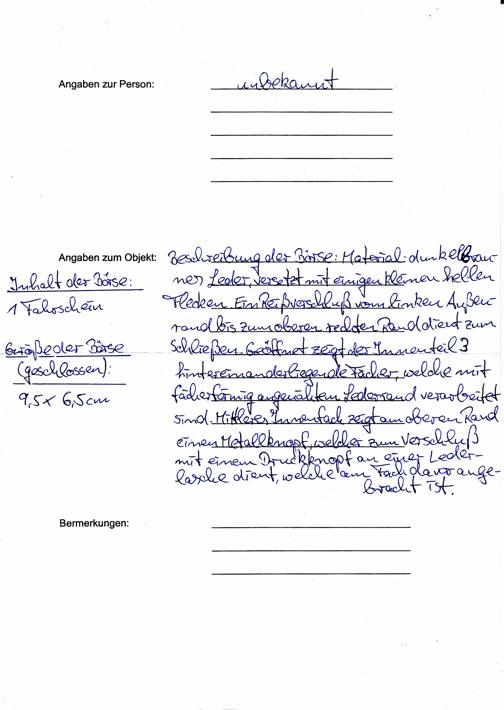 Angaben zur Person:
unbekannt
Angaben zum Objekt:
Beschreibung der Börse: Material: dunkelbrau-
ner Leder, versetzt mit einigen kleinen hellen
Flecken. Ein Reißverschluß vom linken Außen-
rand bis zum oberen rechten Rand dient zum
Schließen. Geöffnet zeigt der Innenteil 3
hintereinanderliegende Fächer, welche mit
fächerförmig angenähten Lederrand verarbeitet
sind. Mittleres Innenfach zeigt am oberen Rand
einen Metallknopf, welcher zum Verschluß
mit einem Druckknopf an einer Leder-
lasche dient, welche am Fach davor ange-
bracht ist.
Inhalt der Börse:
1 Fahrschein
Größe der Börse
(geschlossen):
9,5 x 6,5 cm
Bermerkungen: